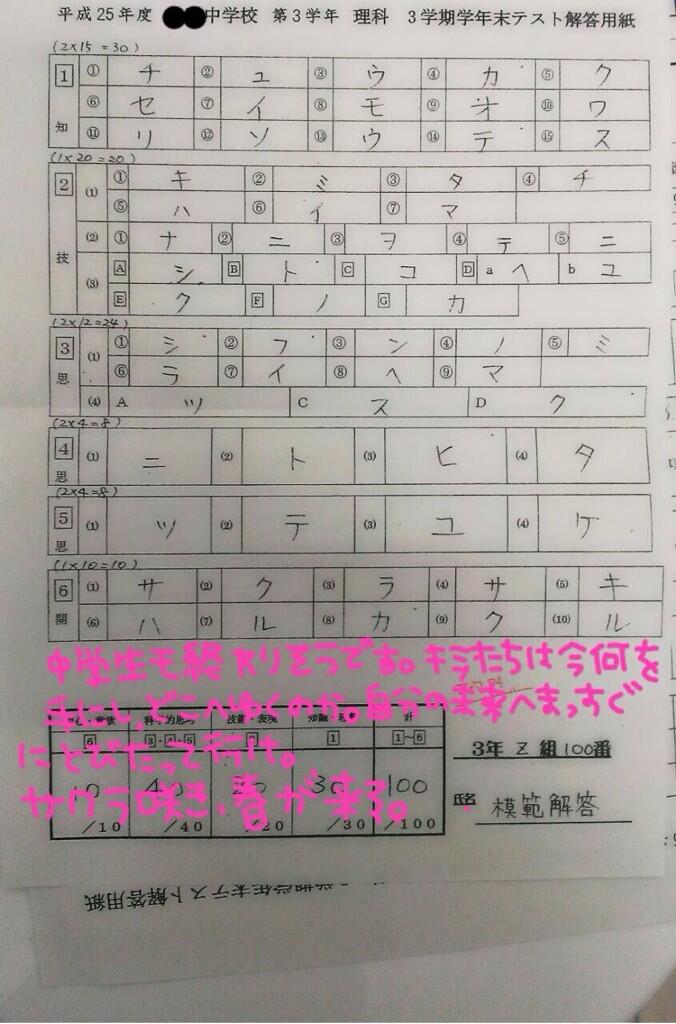 平成25年度 ●●中学校 第3学年 理科 3学期学年末テスト解答用紙
(2×15=30)
1 ① チ ② ュ ③ ウ ④ カ ⑤ ク
⑥ セ ⑦ イ ⑧ モ ⑨ オ ⑩ ワ
知 ⑪ リ ⑫ ソ ⑬ ウ ⑭ テ ⑮ ス
(1×20=20)
2 (1) ① キ ② ミ ③ タ ④ チ
⑤ ハ ⑥ イ ⑦ マ
(2) ① ナ ② ニ ③ ヲ ④ テ ⑤ ニ
技 (3) A シ B ト C コ D a ヘ b ユ
E ク F ノ G カ
(2×12=24)
3 (1) ① シ ② フ ③ ン ④ ノ ⑤ ミ
思 ⑥ ラ ⑦ イ ⑧ ヘ ⑨ マ
(4) A ツ C ス D ク
(2×4=8)
4 (1) ニ (2) ト (3) ヒ (4) タ
思
(2×4=8)
5 (1) ツ (2) テ (3) ユ (4) ケ
思
(1×10=10)
6 (1) サ (2) ク (3) ラ (4) サ (5) キ
関 (6) ハ (7) ル (8) カ (9) ク (10) ル
中学生も終わりそうです。キミたちは今何を
手にし、どこへゆくのか。自分の未来へまっすぐ
にとびたって行け。
サクラ咲き、春が来る。
科学的思考 技能・表現 計
6 3・4・5 1 1~6
40 30 100
/10 /40 /20 /30 /100
3年 Z 組 100番
氏名 模範解答
学期学年末テスト解答用紙